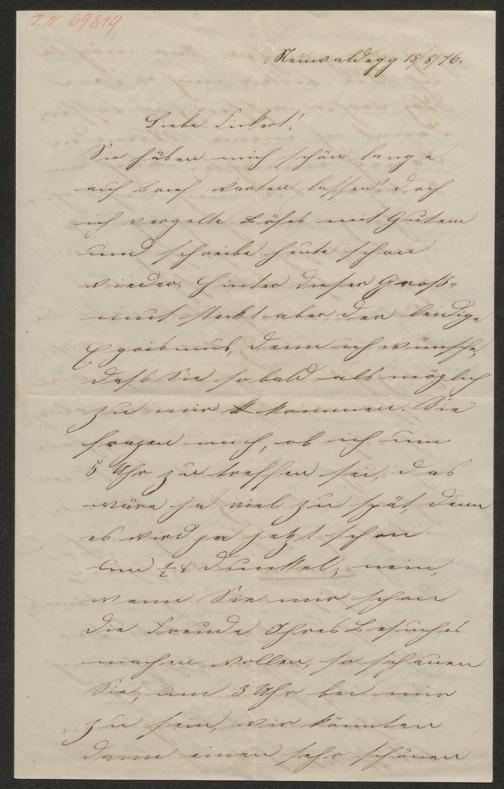 I.N. 69819
Neuwaldegg 15/8/76.
Liebe Sickert!
Sie haben mich schön lange
auf Brief warten lassen! doch
ich vergelte Böses mit Gutem
und schreibe heute schon
wieder. Hinter dieser Groß-
muth steckt aber der leidige
Egoismus, denn ich wünsche,
daß Sie sobald als möglich
zu mir kommen. Sie
fragen mich, ob ich um
5 Uhr zu treffen sei, das
wäre ja viel zu spät, denn
es wird ja jetzt schon
um ½8 dunkel; nein,
wenn Sie mir schon
die Freude Ihres Besuches
machen wollen, so schauen
Sie, um 3 Uhr bei mir
zu sein, wir könnten
dann einen sehr schönen